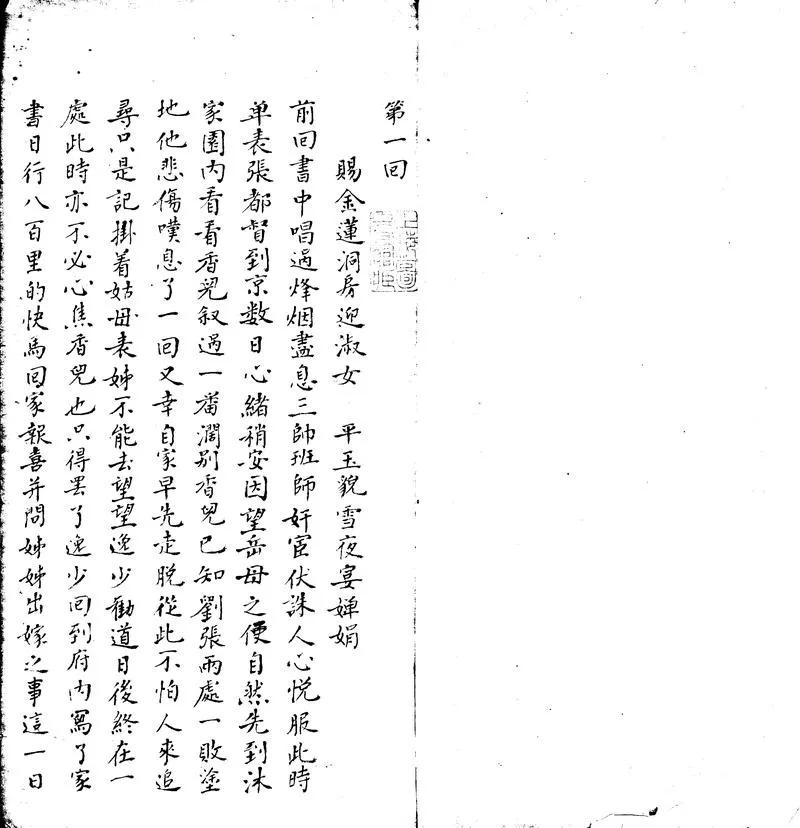 第一回
賜金蓮洞房迎淑女 平玉貌雪夜宴嬋娟
前回書中唱過烽烟盡息三帥班師奸宦伏誅人心悅服此時
单表張都督到京数日心緒稍安因望岳母之便自然先到沐
家園内看看香兒叙過一畨濶别香兒已知劉張兩處一敗塗
地他悲傷嘆息了一回又幸自家早先走脱從此不怕人來追
尋只是記掛着姑母表姊不能去望望逸少勸道日後終在一
處此時亦不必心焦香兒也只得罢了逸少回到府内寫了家
書日行八百里的快馬回家報喜并問姊姊出嫁之事這一日